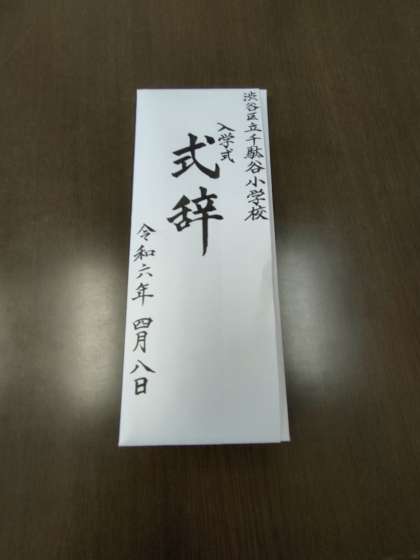 渋谷区立千駄谷小学校
入学式
式辞
令和六年 四月八日